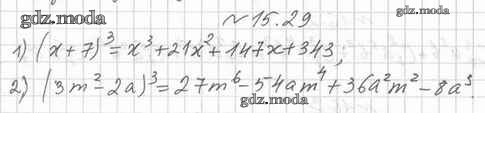 gdz.moda
№15.29
gdz.moda
1) (x+7)³=x³+21x²+147x+343;
2) (3m²-2a)³=27m⁶-54am⁴+36a²m²-8a³.
gdz.moda